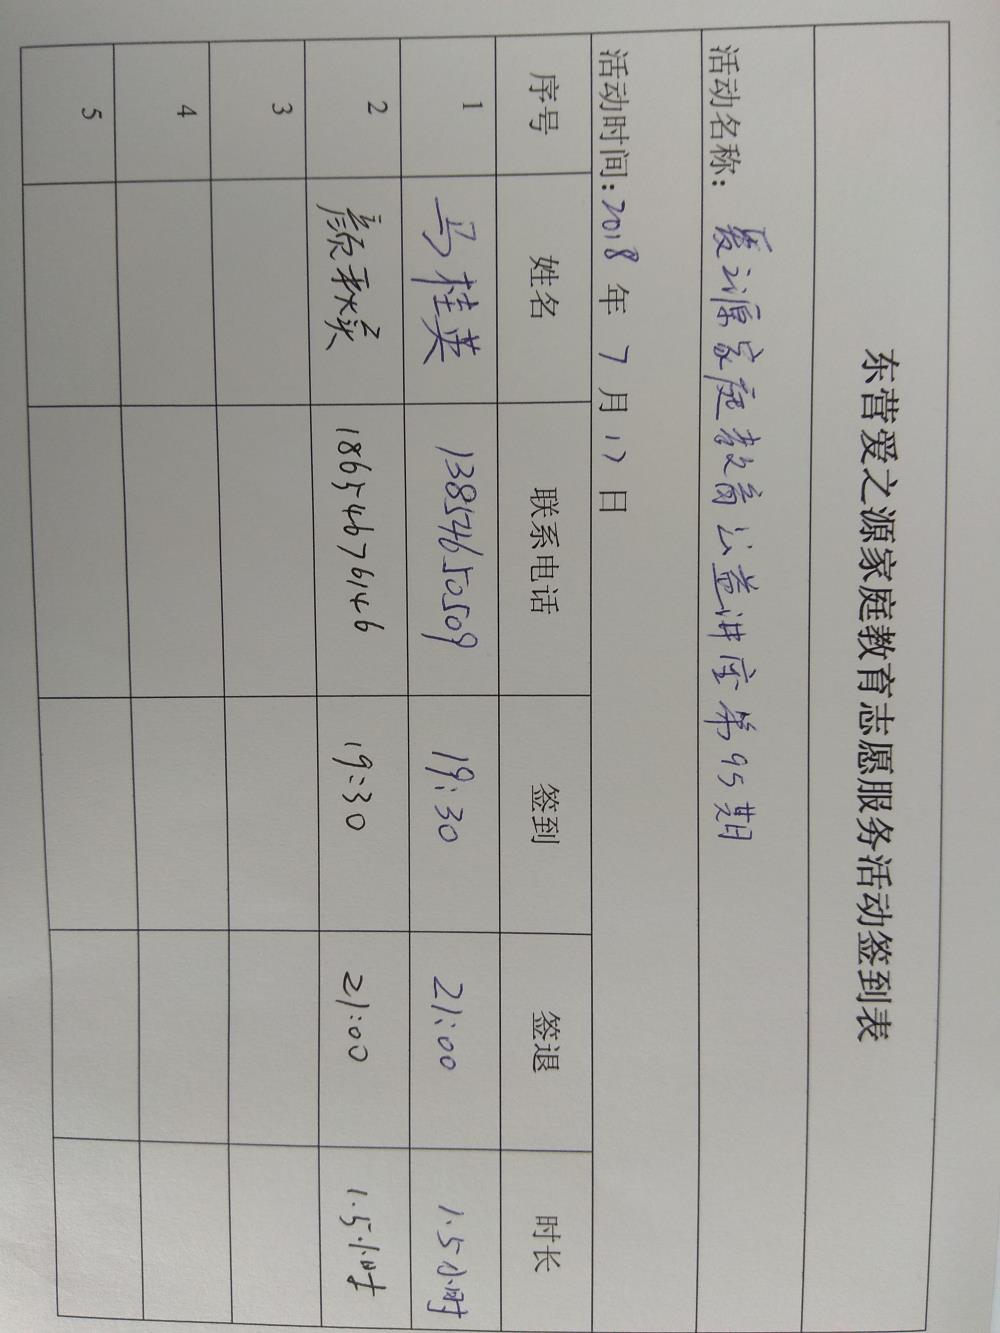 东营爱之源家庭教育志愿服务活动签到表
活动名称： 爱之源家庭教育公益讲座第95期
活动时间：2018 年 7 月 17 日
序号 姓名 联系电话 签到 签退 时长
1 马桂英 13854650509 19:30 21:00 1.5小时
2 颜秋霞 18654676146 19:30 21:00 1.5小时
3
4
5